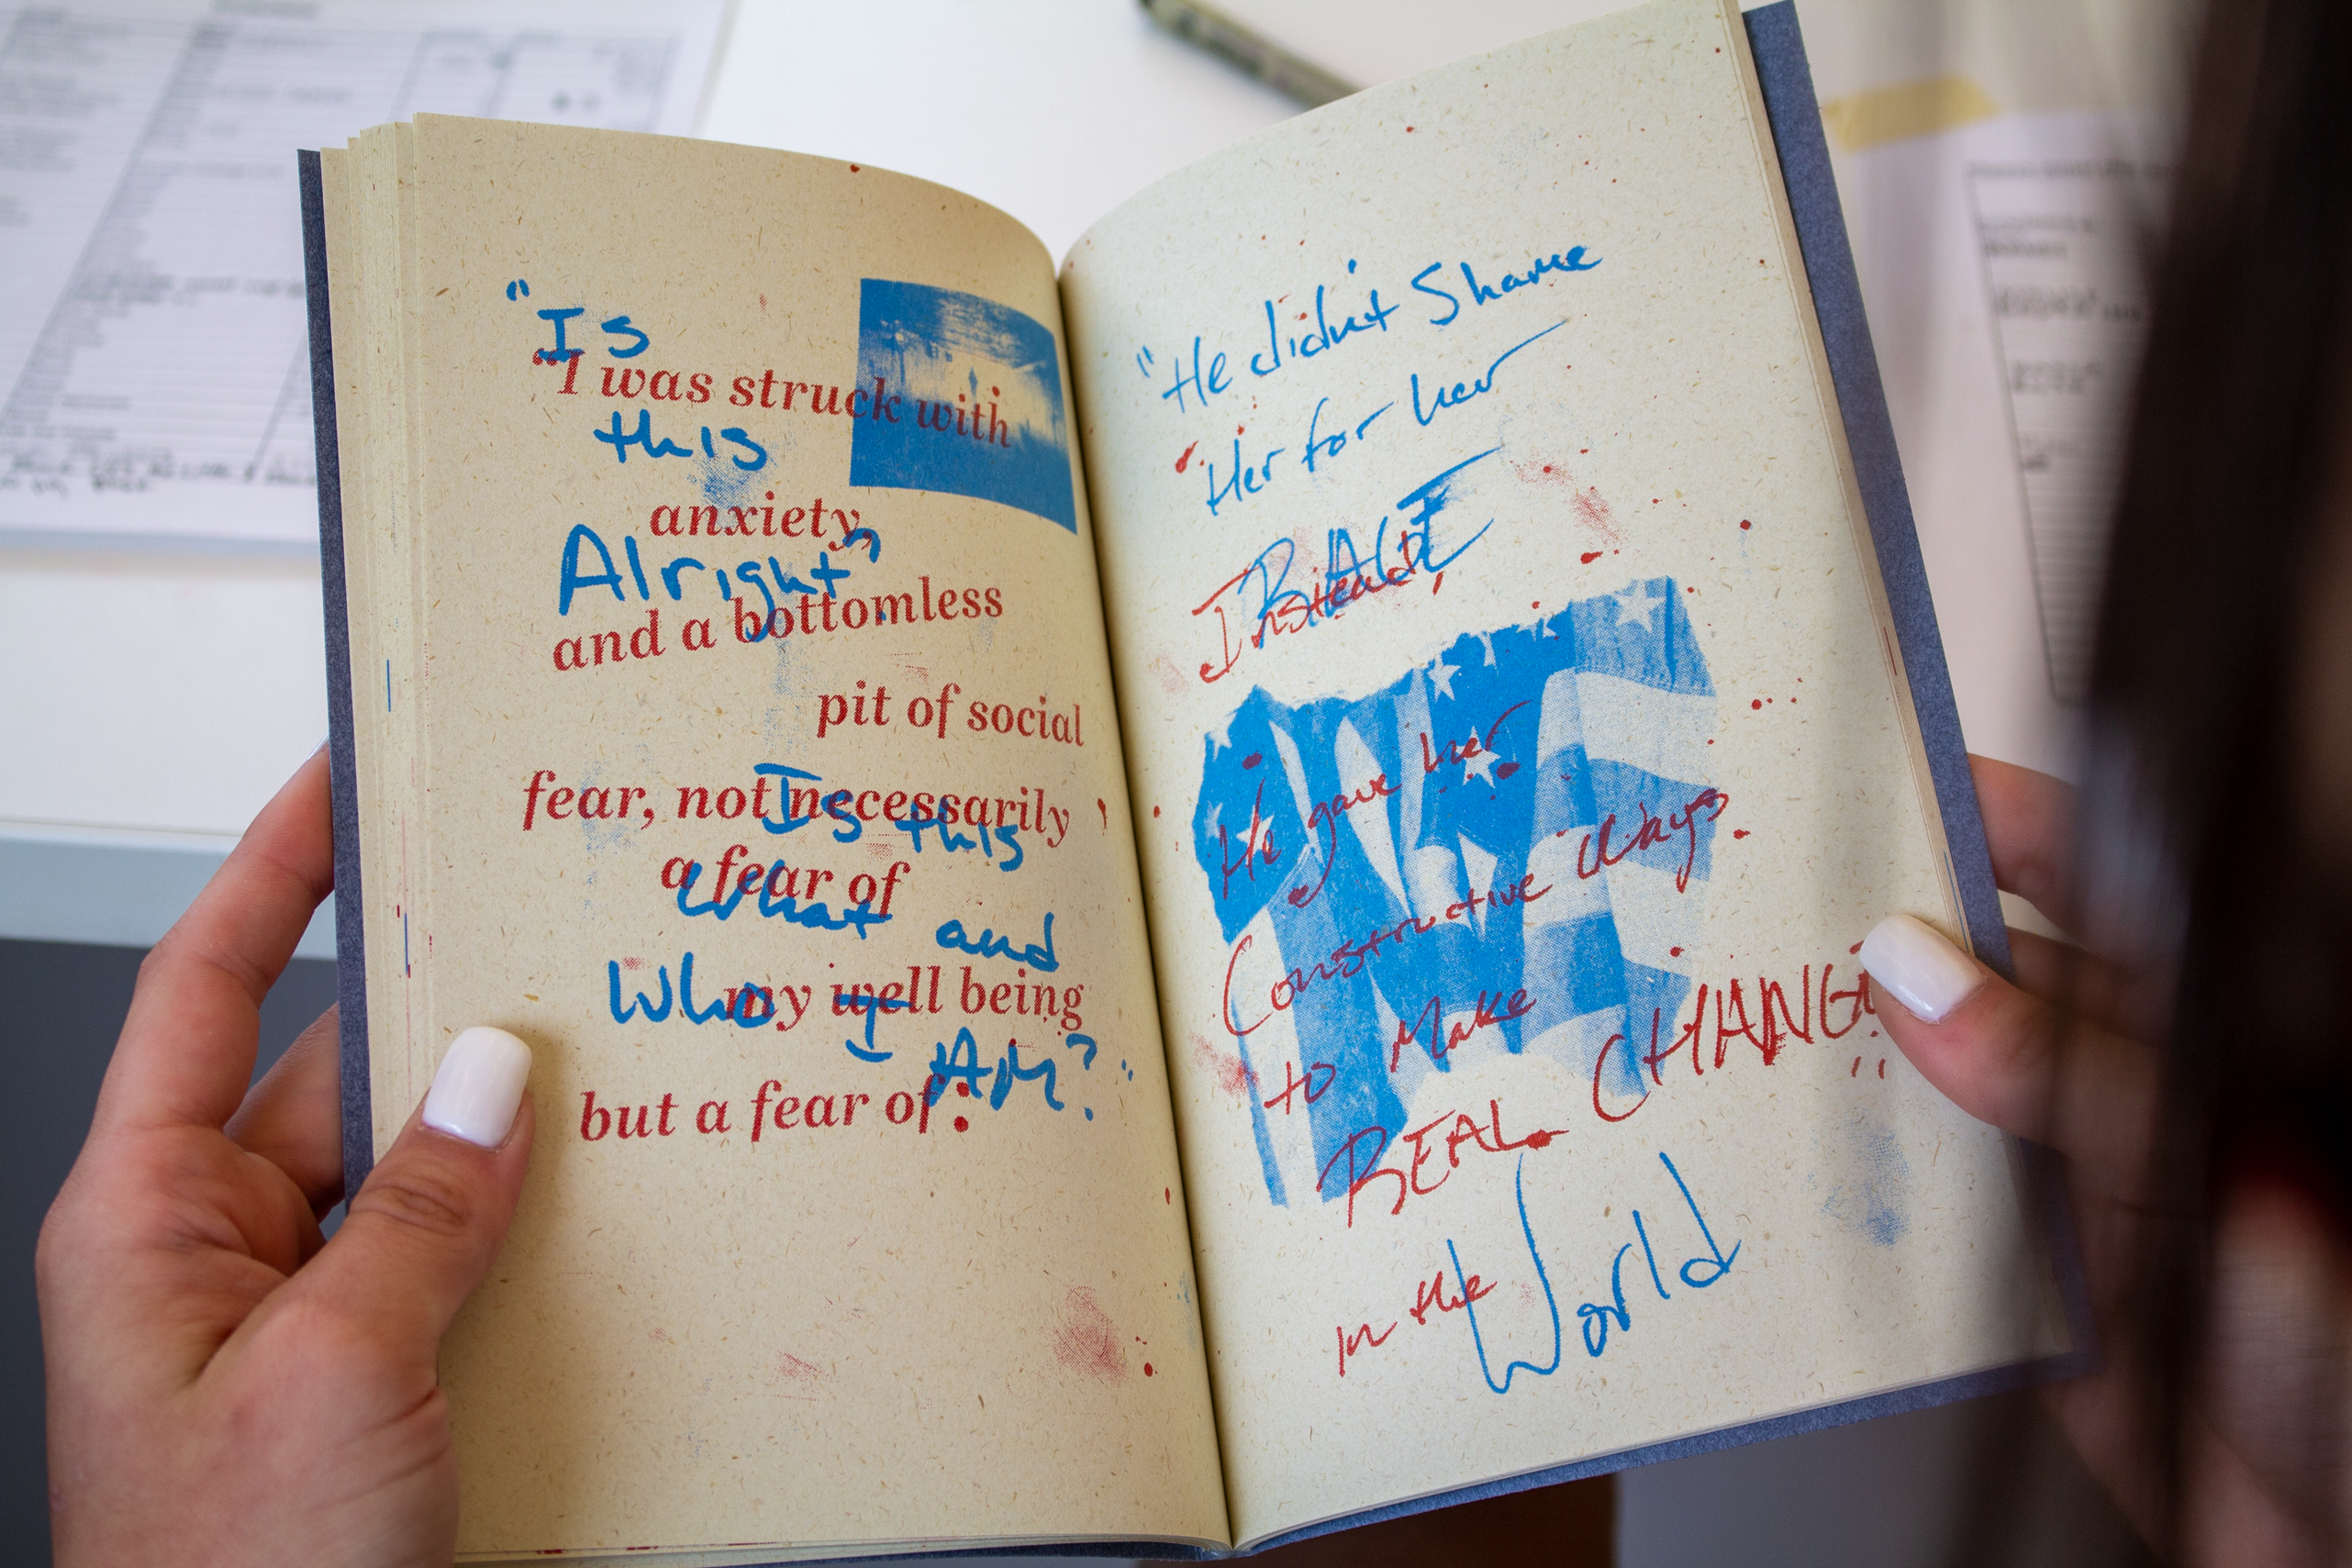 "Is
"I was struck with
this
anxiety,
Alright"?
and a bottomless
pit of social
fear, not necessarily
Is this
a fear of
what and
my well being
Who I
AM?"
but a fear of:
"He didn't Shame
Her for her
RAGE
Instead,
He gave her
Constructive Ways
to Make
REAL CHANGE"
in the World